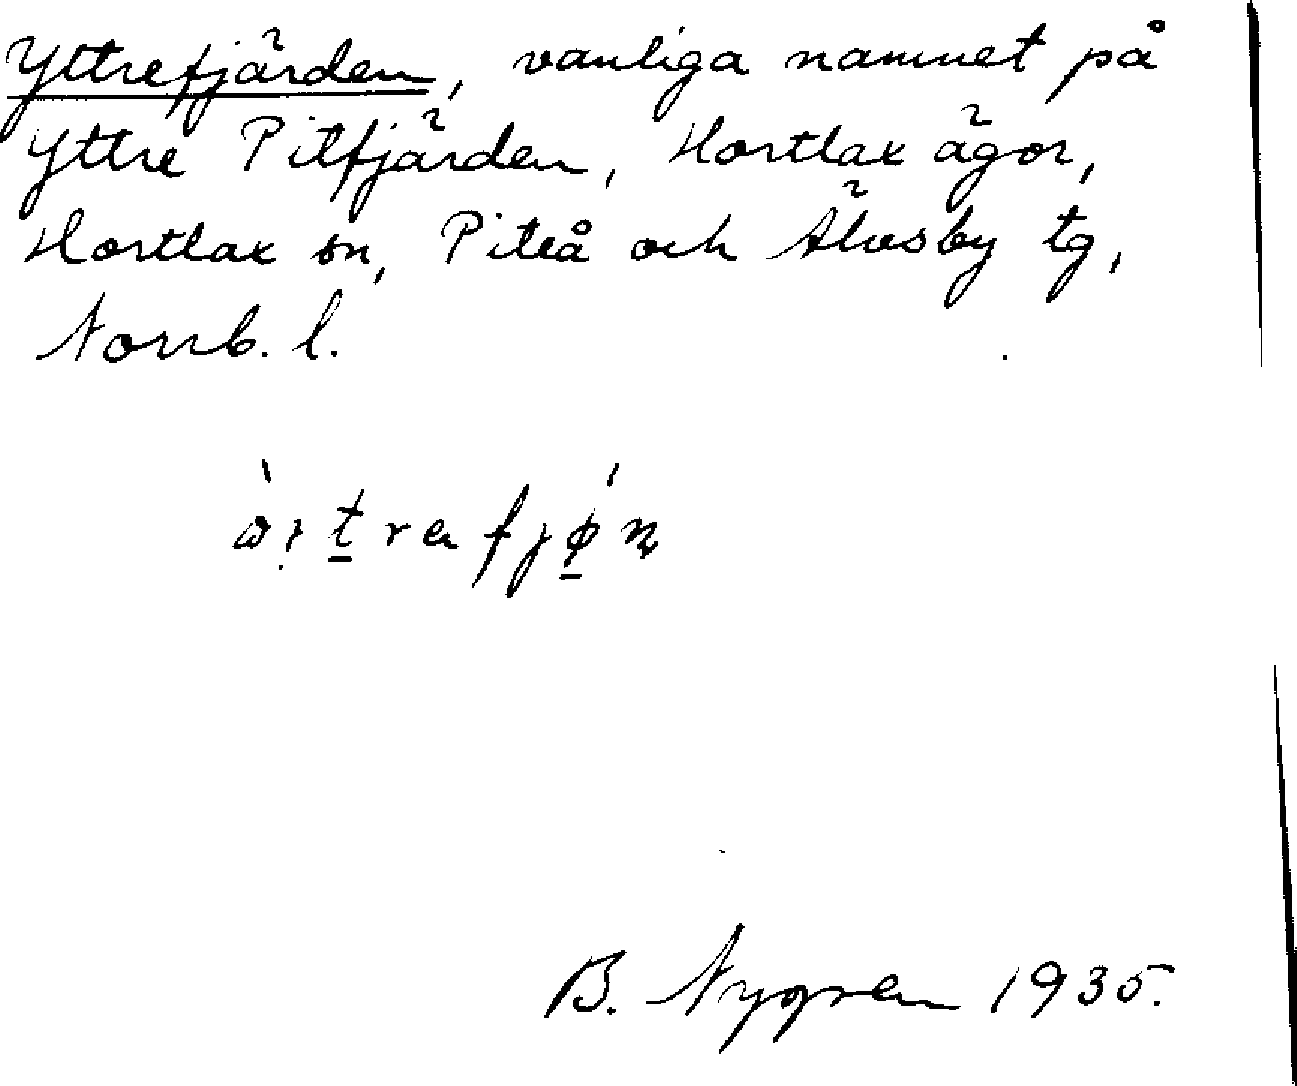 Yttrefjärden, vanliga namnet på
Yttre Pitfjärden, Hortlax ägor,
Hortlax sn, Piteå och Älvsby tg,
Norrb. l.
B. Nygren 1935.